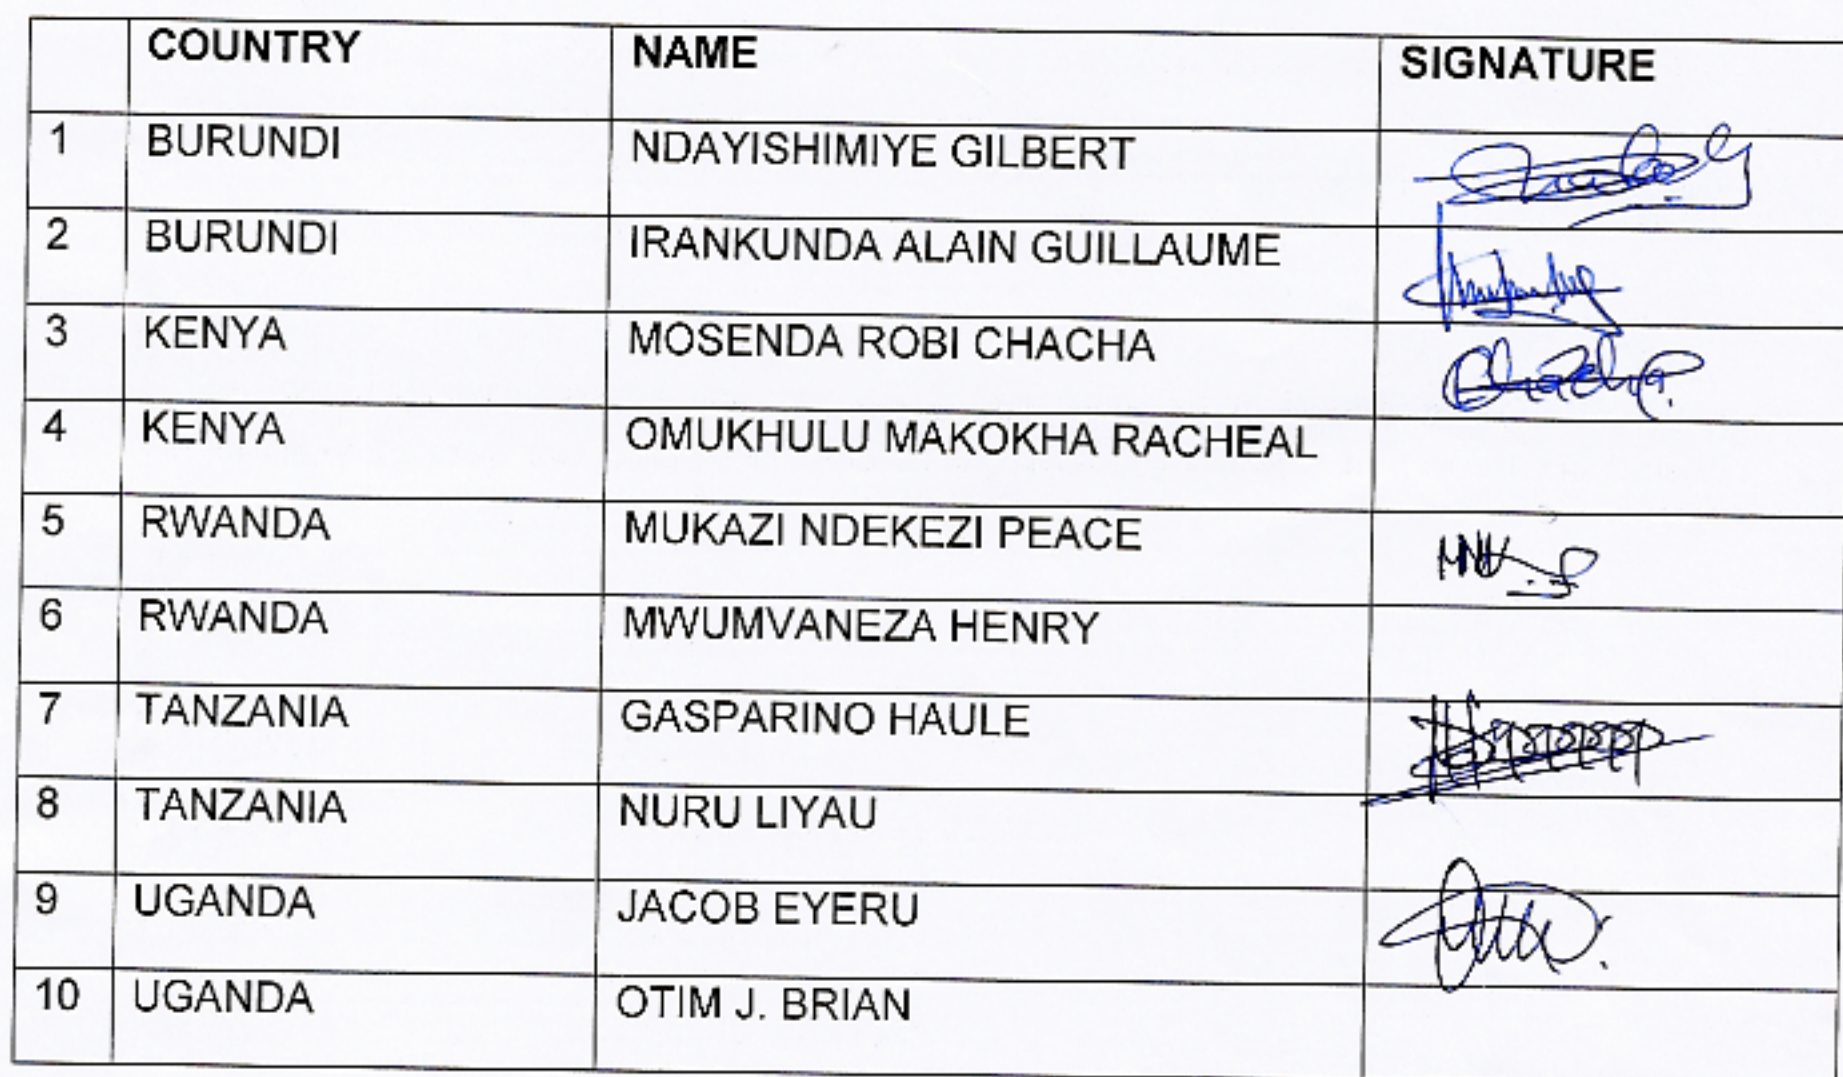 COUNTRY NAME SIGNATURE
1 BURUNDI NDAYISHIMIYE GILBERT
2 BURUNDI IRANKUNDA ALAIN GUILLAUME
3 KENYA MOSENDA ROBI CHACHA
4 KENYA OMUKHULU MAKOKHA RACHEAL
5 RWANDA MUKAZI NDEKEZI PEACE
6 RWANDA MWUMVANEZA HENRY
7 TANZANIA GASPARINO HAULE
8 TANZANIA NURU LIYAU
9 UGANDA JACOB EYERU
10 UGANDA OTIM J. BRIAN